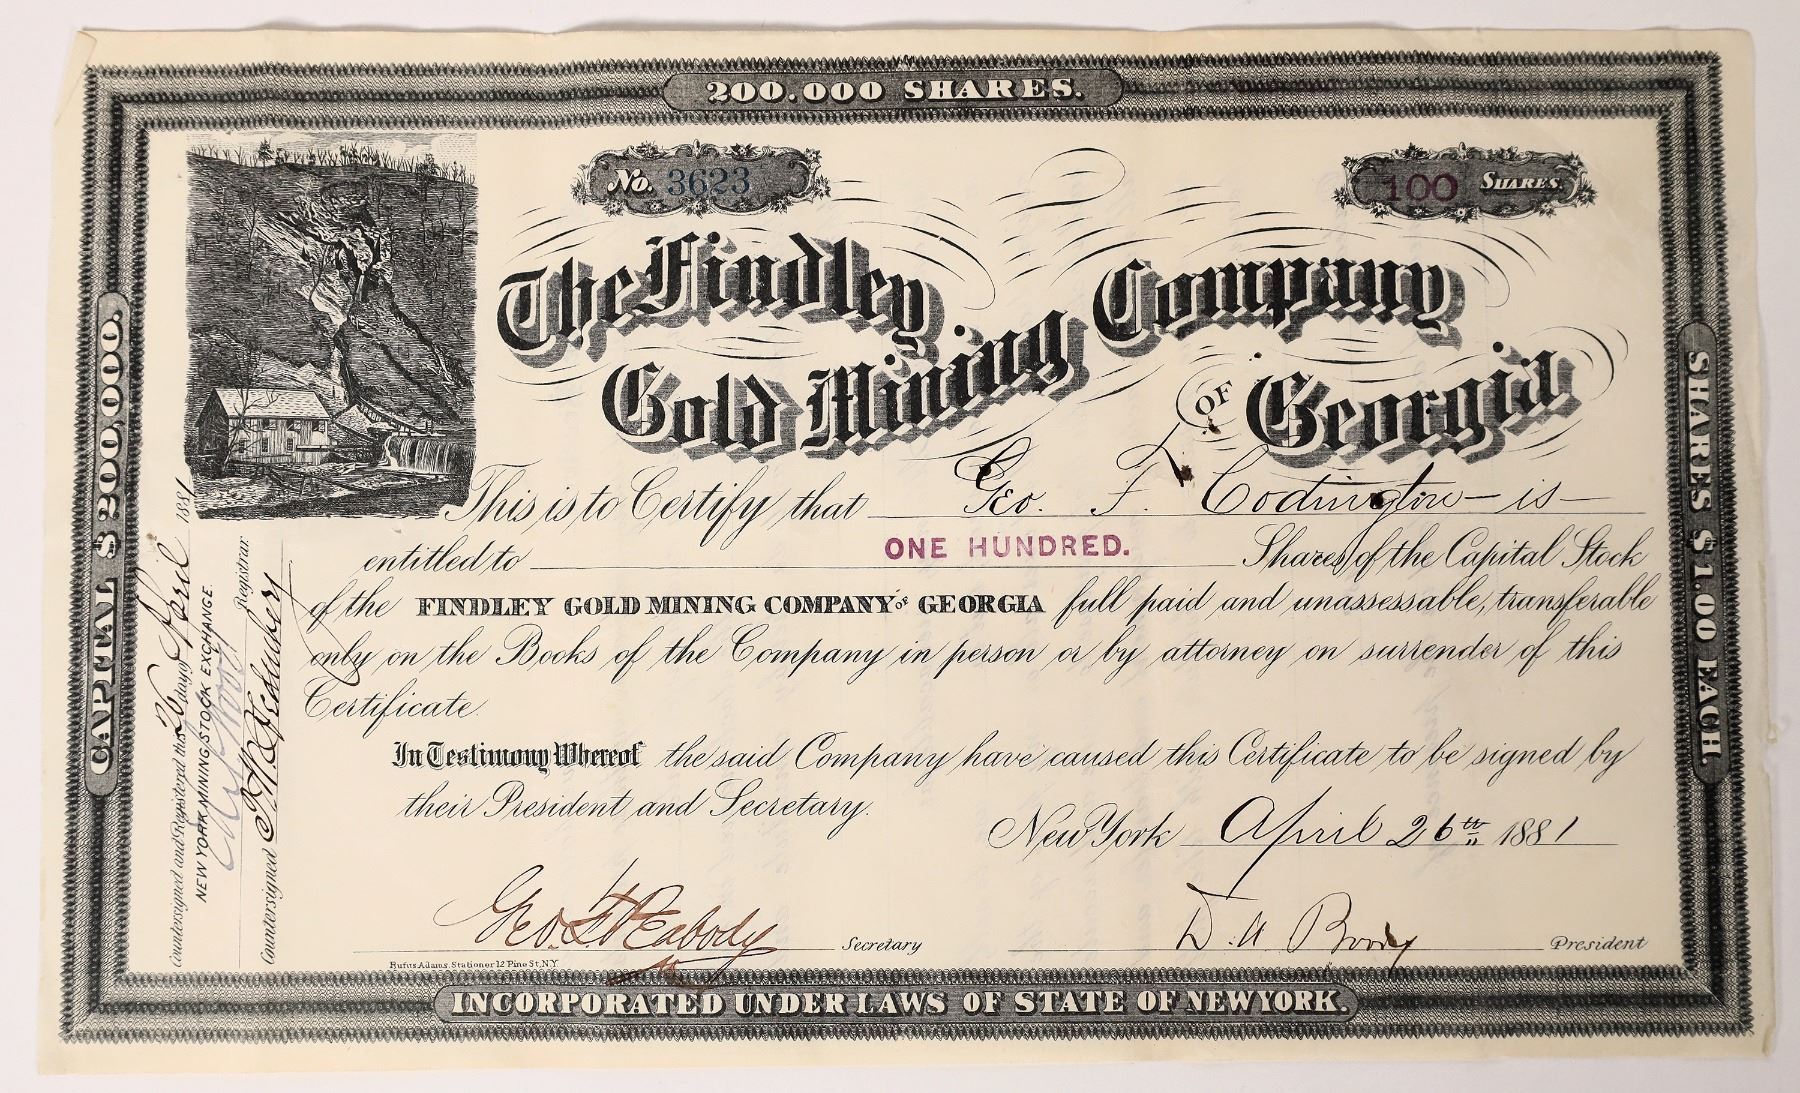 200.000 SHARES.
No. 3623
100 SHARES
The Findley
Gold Mining
Company
OF Georgia
This is to Certify that Geo. F. Codington is
entitled to ONE HUNDRED. Shares of the Capital Stock
of the FINDLEY GOLD MINING COMPANY of GEORGIA full paid and unassessable, transferable
only on the Books of the Company in person or by attorney on surrender of this
Certificate.
In Testimony Whereof the said Company have caused this Certificate to be signed by
their President and Secretary.
New York April 26th 1881
Geo. Peabody Secretary
President
Rufus Adams. Stationer 12 Pine St. N.Y.
INCORPORATED UNDER LAWS OF STATE OF NEW YORK.
CAPITAL $200,000.
SHARES $1.00 EACH
Countersigned and Registered this 26 day of April 1881
NEW YORK MINING STOCK EXCHANGE
Registrar
Countersigned